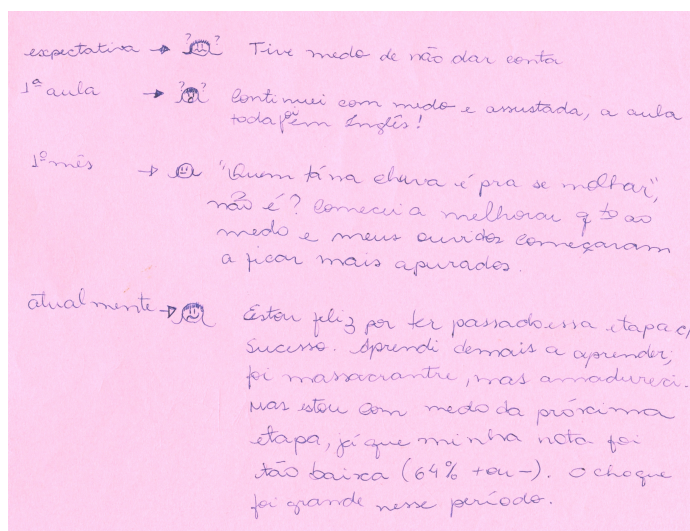 expectativa → ? ? Tive medo de não dar conta
1ª aula → ? ? Continuei com medo e assustada, a aula
toda foi em Inglês!
1º mês → "Quem tá na chuva é pra se molhar",
não é? Comecei a melhorar qto ao
medo e meus ouvidos começaram
a ficar mais apurados.
atualmente → Estou feliz por ter passado essa etapa c/
sucesso. Aprendi demais a aprender,
foi massacrante, mas amadureci.
Mas estou com medo da próxima
etapa, já que minha nota foi
tão baixa (64% + ou -). O choque
foi grande nesse período.